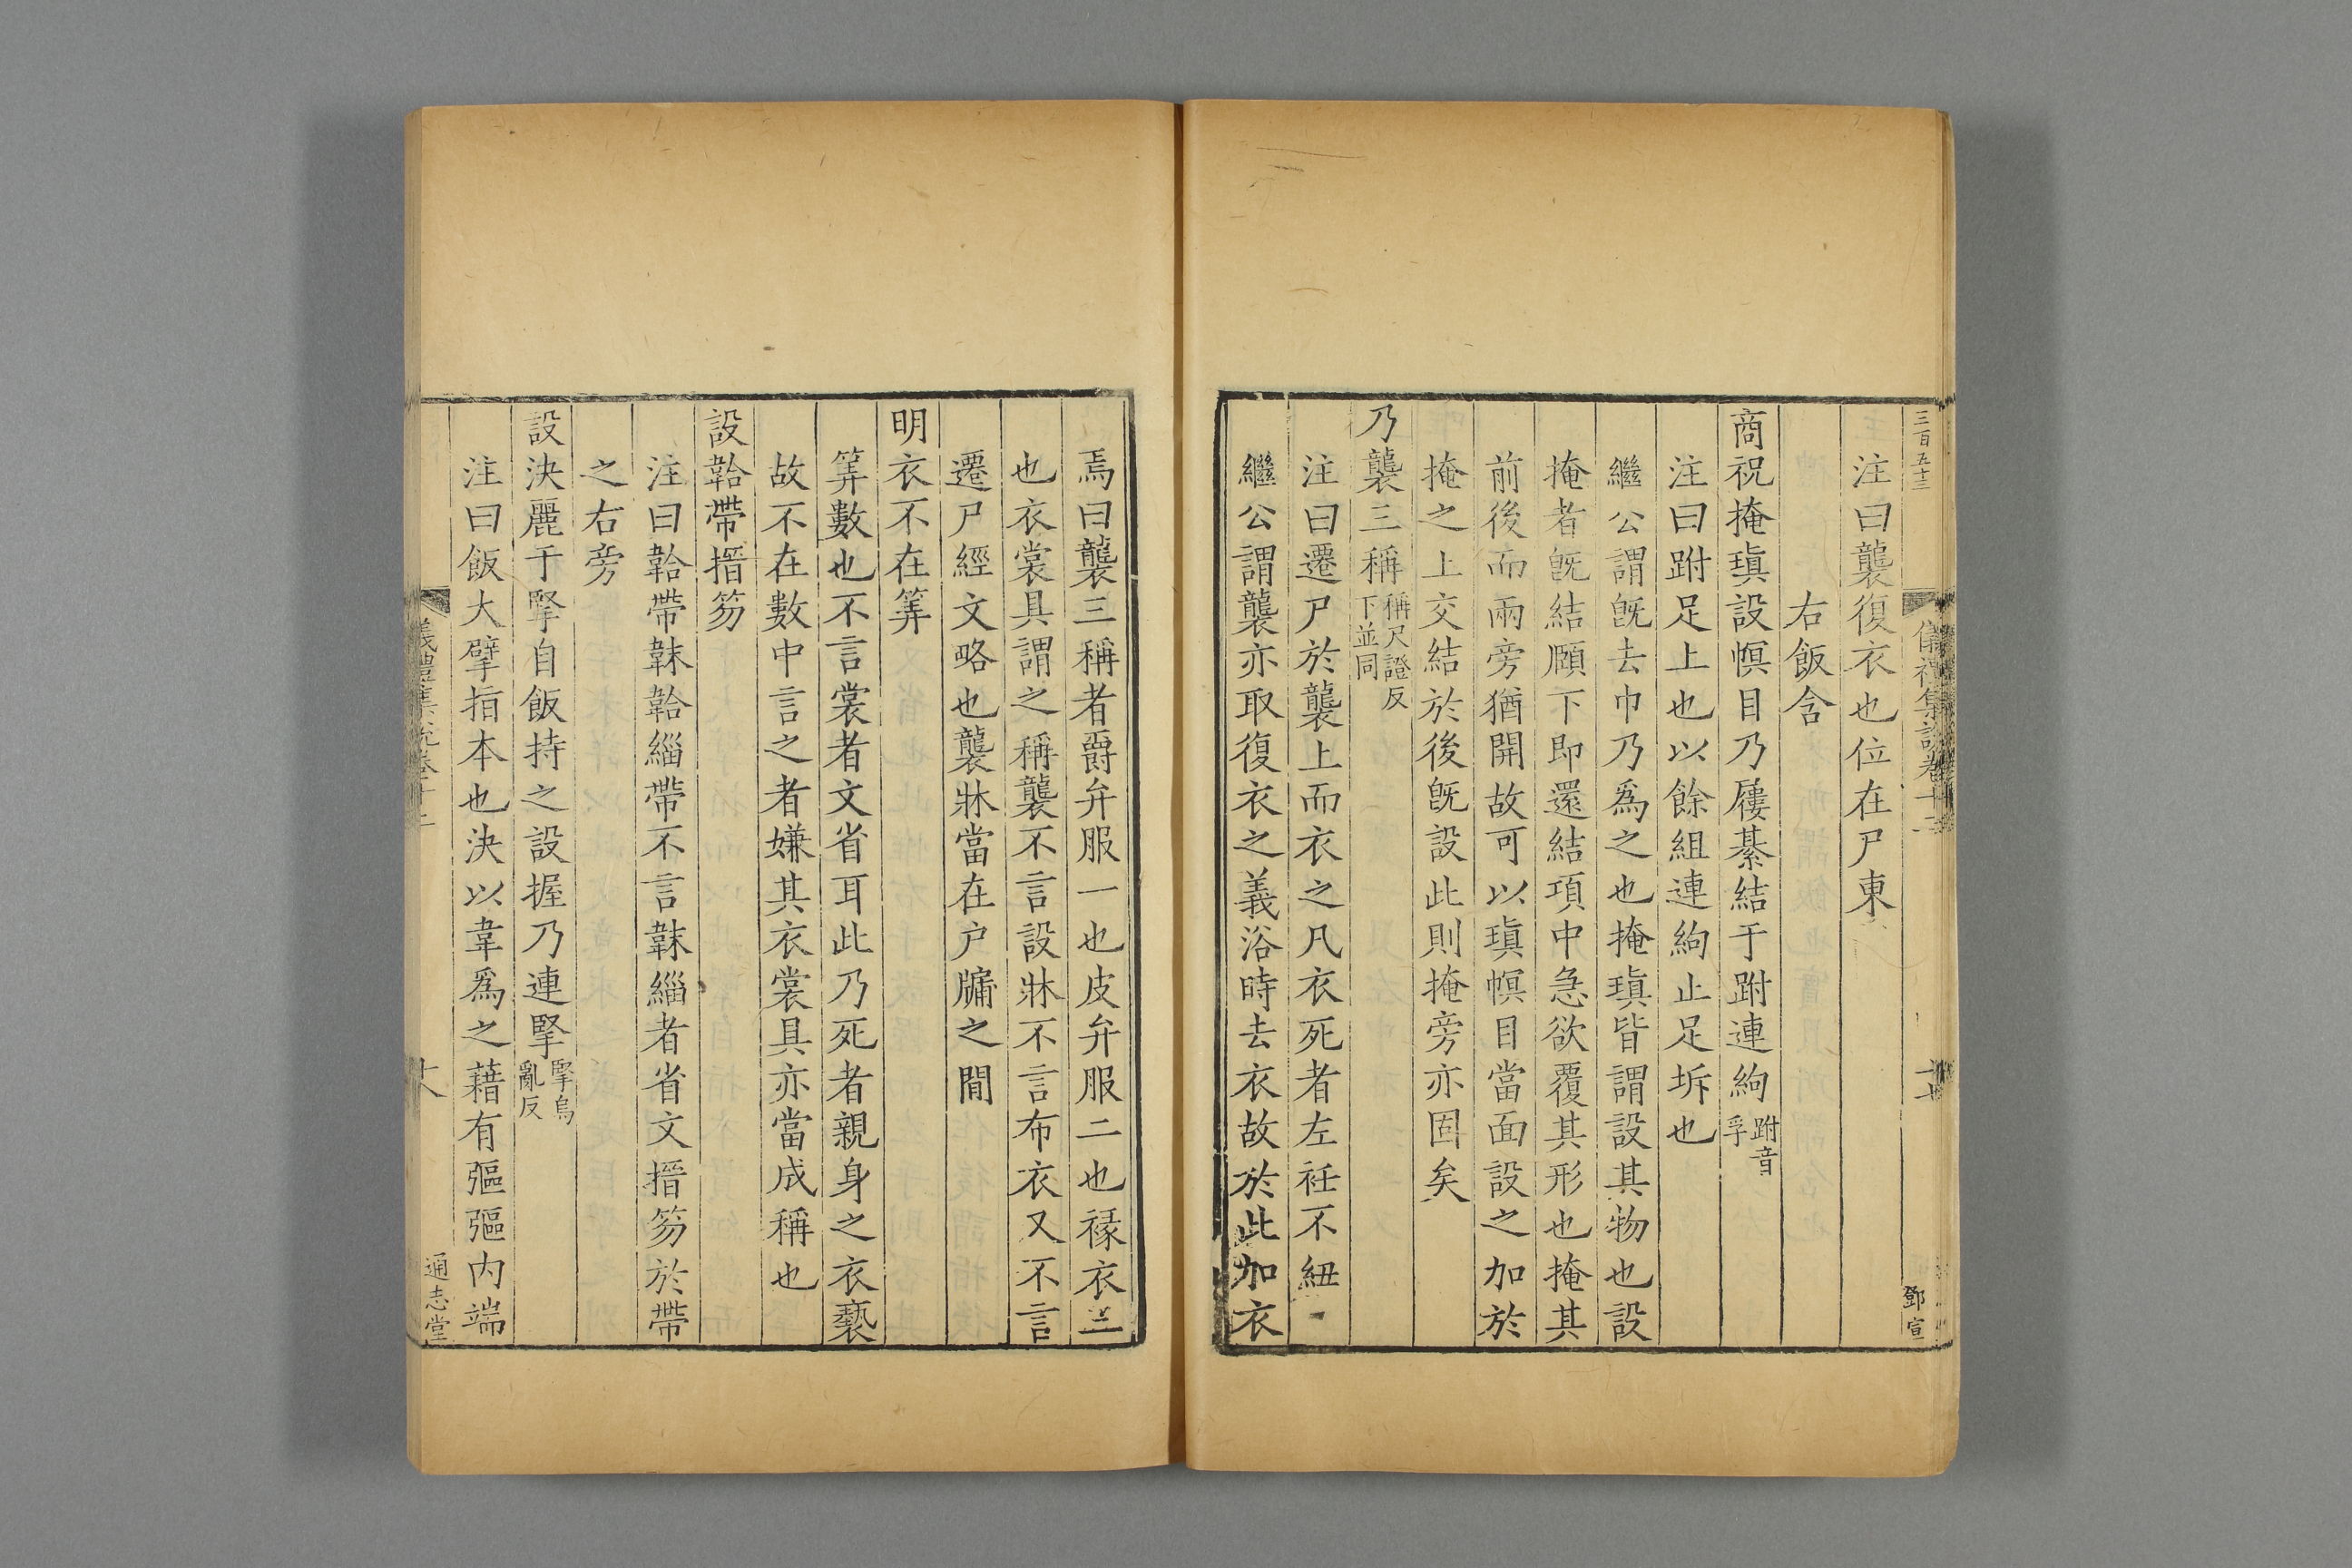 三百五十三
儀禮集說卷十二
十七
鄧宣
注曰襲復衣也位在尸東
右飯含
商祝掩瑱設幎目乃屨綦結于跗連絇跗音孚
注曰跗足上也以餘組連絇止足坼也
繼公謂旣去巾乃爲之也掩瑱皆謂設其物也設
掩者旣結頤下即還結項中急欲覆其形也掩其
前後而兩旁猶開故可以瑱幎目當面設之加於
掩之上交結於後旣設此則掩旁亦固矣
乃襲三稱稱尺證反下並同
注曰遷尸於襲上而衣之凡衣死者左衽不紐
繼公謂襲亦取復衣之義浴時去衣故於此加衣
焉曰襲三稱者爵弁服一也皮弁服二也褖衣三
也衣裳具謂之稱襲不言設牀不言布衣又不言
遷尸經文略也襲牀當在户牖之間
明衣不在筭
筭數也不言裳者文省耳此乃死者親身之衣褻
故不在數中言之者嫌其衣裳具亦當成稱也
設韐帶搢笏
注曰韐帶韎韐緇帶不言韎緇者省文搢笏於帶
之右旁
設決麗于掔自飯持之設握乃連掔掔烏亂反
注曰飯大擘指本也決以韋爲之藉有彄彄内端
儀禮集說卷十二
十八
通志堂